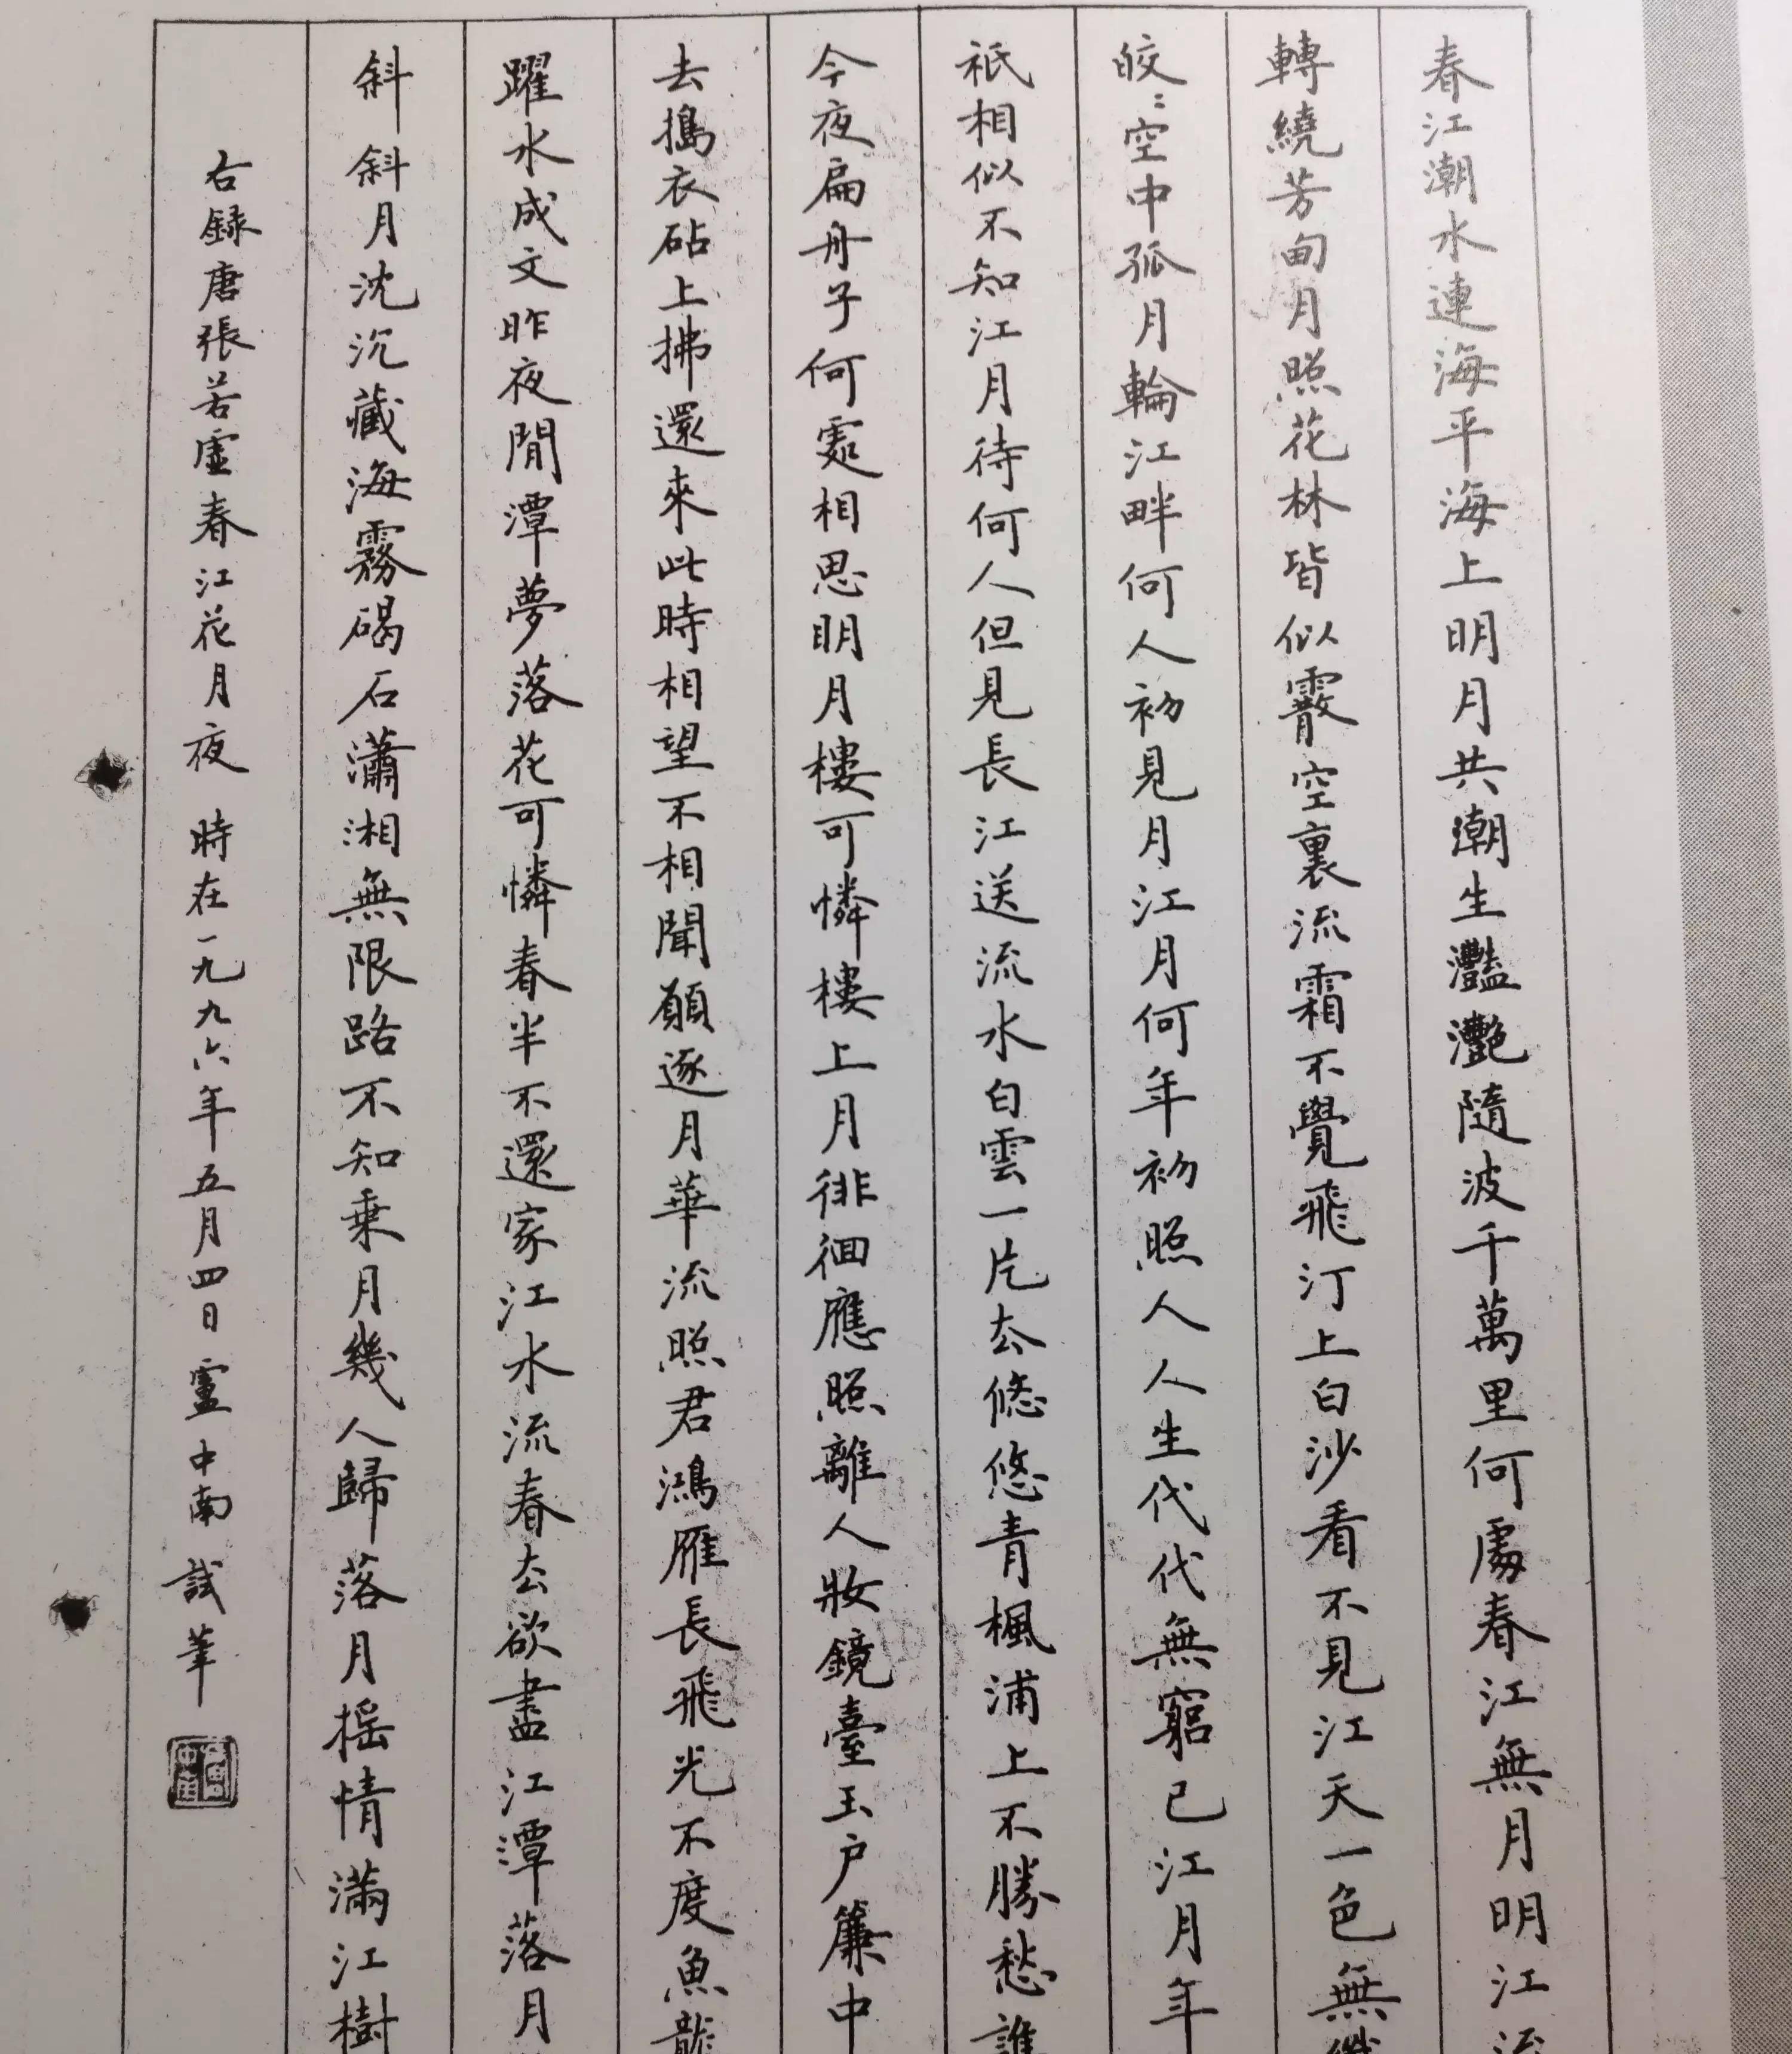 春江潮水連海平海上明月共潮生灩灧隨波千萬里何處春江無月明江流
轉繞芳甸月照花林皆似霰空裏流霜不覺飛汀上白沙看不見江天一色無纖
皎〻空中孤月輪江畔何人初見月江月何年初照人人生代代無窮已江月年
祇相似不知江月待何人但見長江送流水白雲一片去悠悠青楓浦上不勝愁誰
今夜扁舟子何處相思明月樓可憐樓上月徘徊應照離人妝鏡臺玉户簾中
去搗衣砧上拂還來此時相望不相聞願逐月華流照君鴻雁長飛光不度魚龍
躍水成文昨夜閒潭夢落花可憐春半不還家江水流春去欲盡江潭落月
斜斜月沈沉藏海霧碣石瀟湘無限路不知乘月幾人歸落月搖情滿江樹
右録唐張若虛春江花月夜 時在一九九六年五月四日 盧中南 試筆